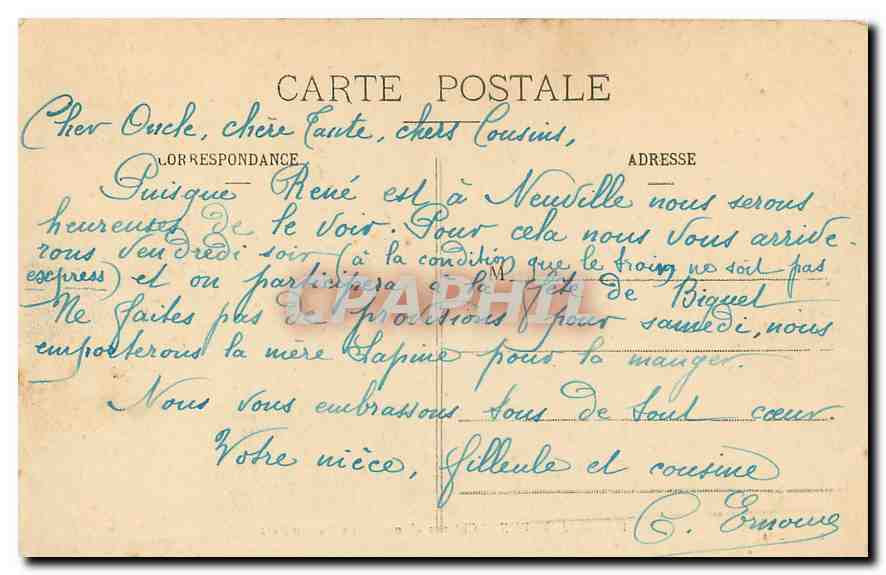 CARTE POSTALE
Cher Oncle, chère Tante, chers Cousins,
CORRESPONDANCE
ADRESSE
Puisque René est à Neuville nous serons
heureuses de le voir. Pour cela nous vous arrive-
rons vendredi soir (à la condition que le train ne soit pas
express) et on participera à la fête de Biquet
M
CPAPHIL
Ne faites pas de provisions pour samedi, nous
emporterons la mère Lapine pour la manger.
Nous vous embrassons tous de tout coeur.
Votre nièce, filleule et cousine